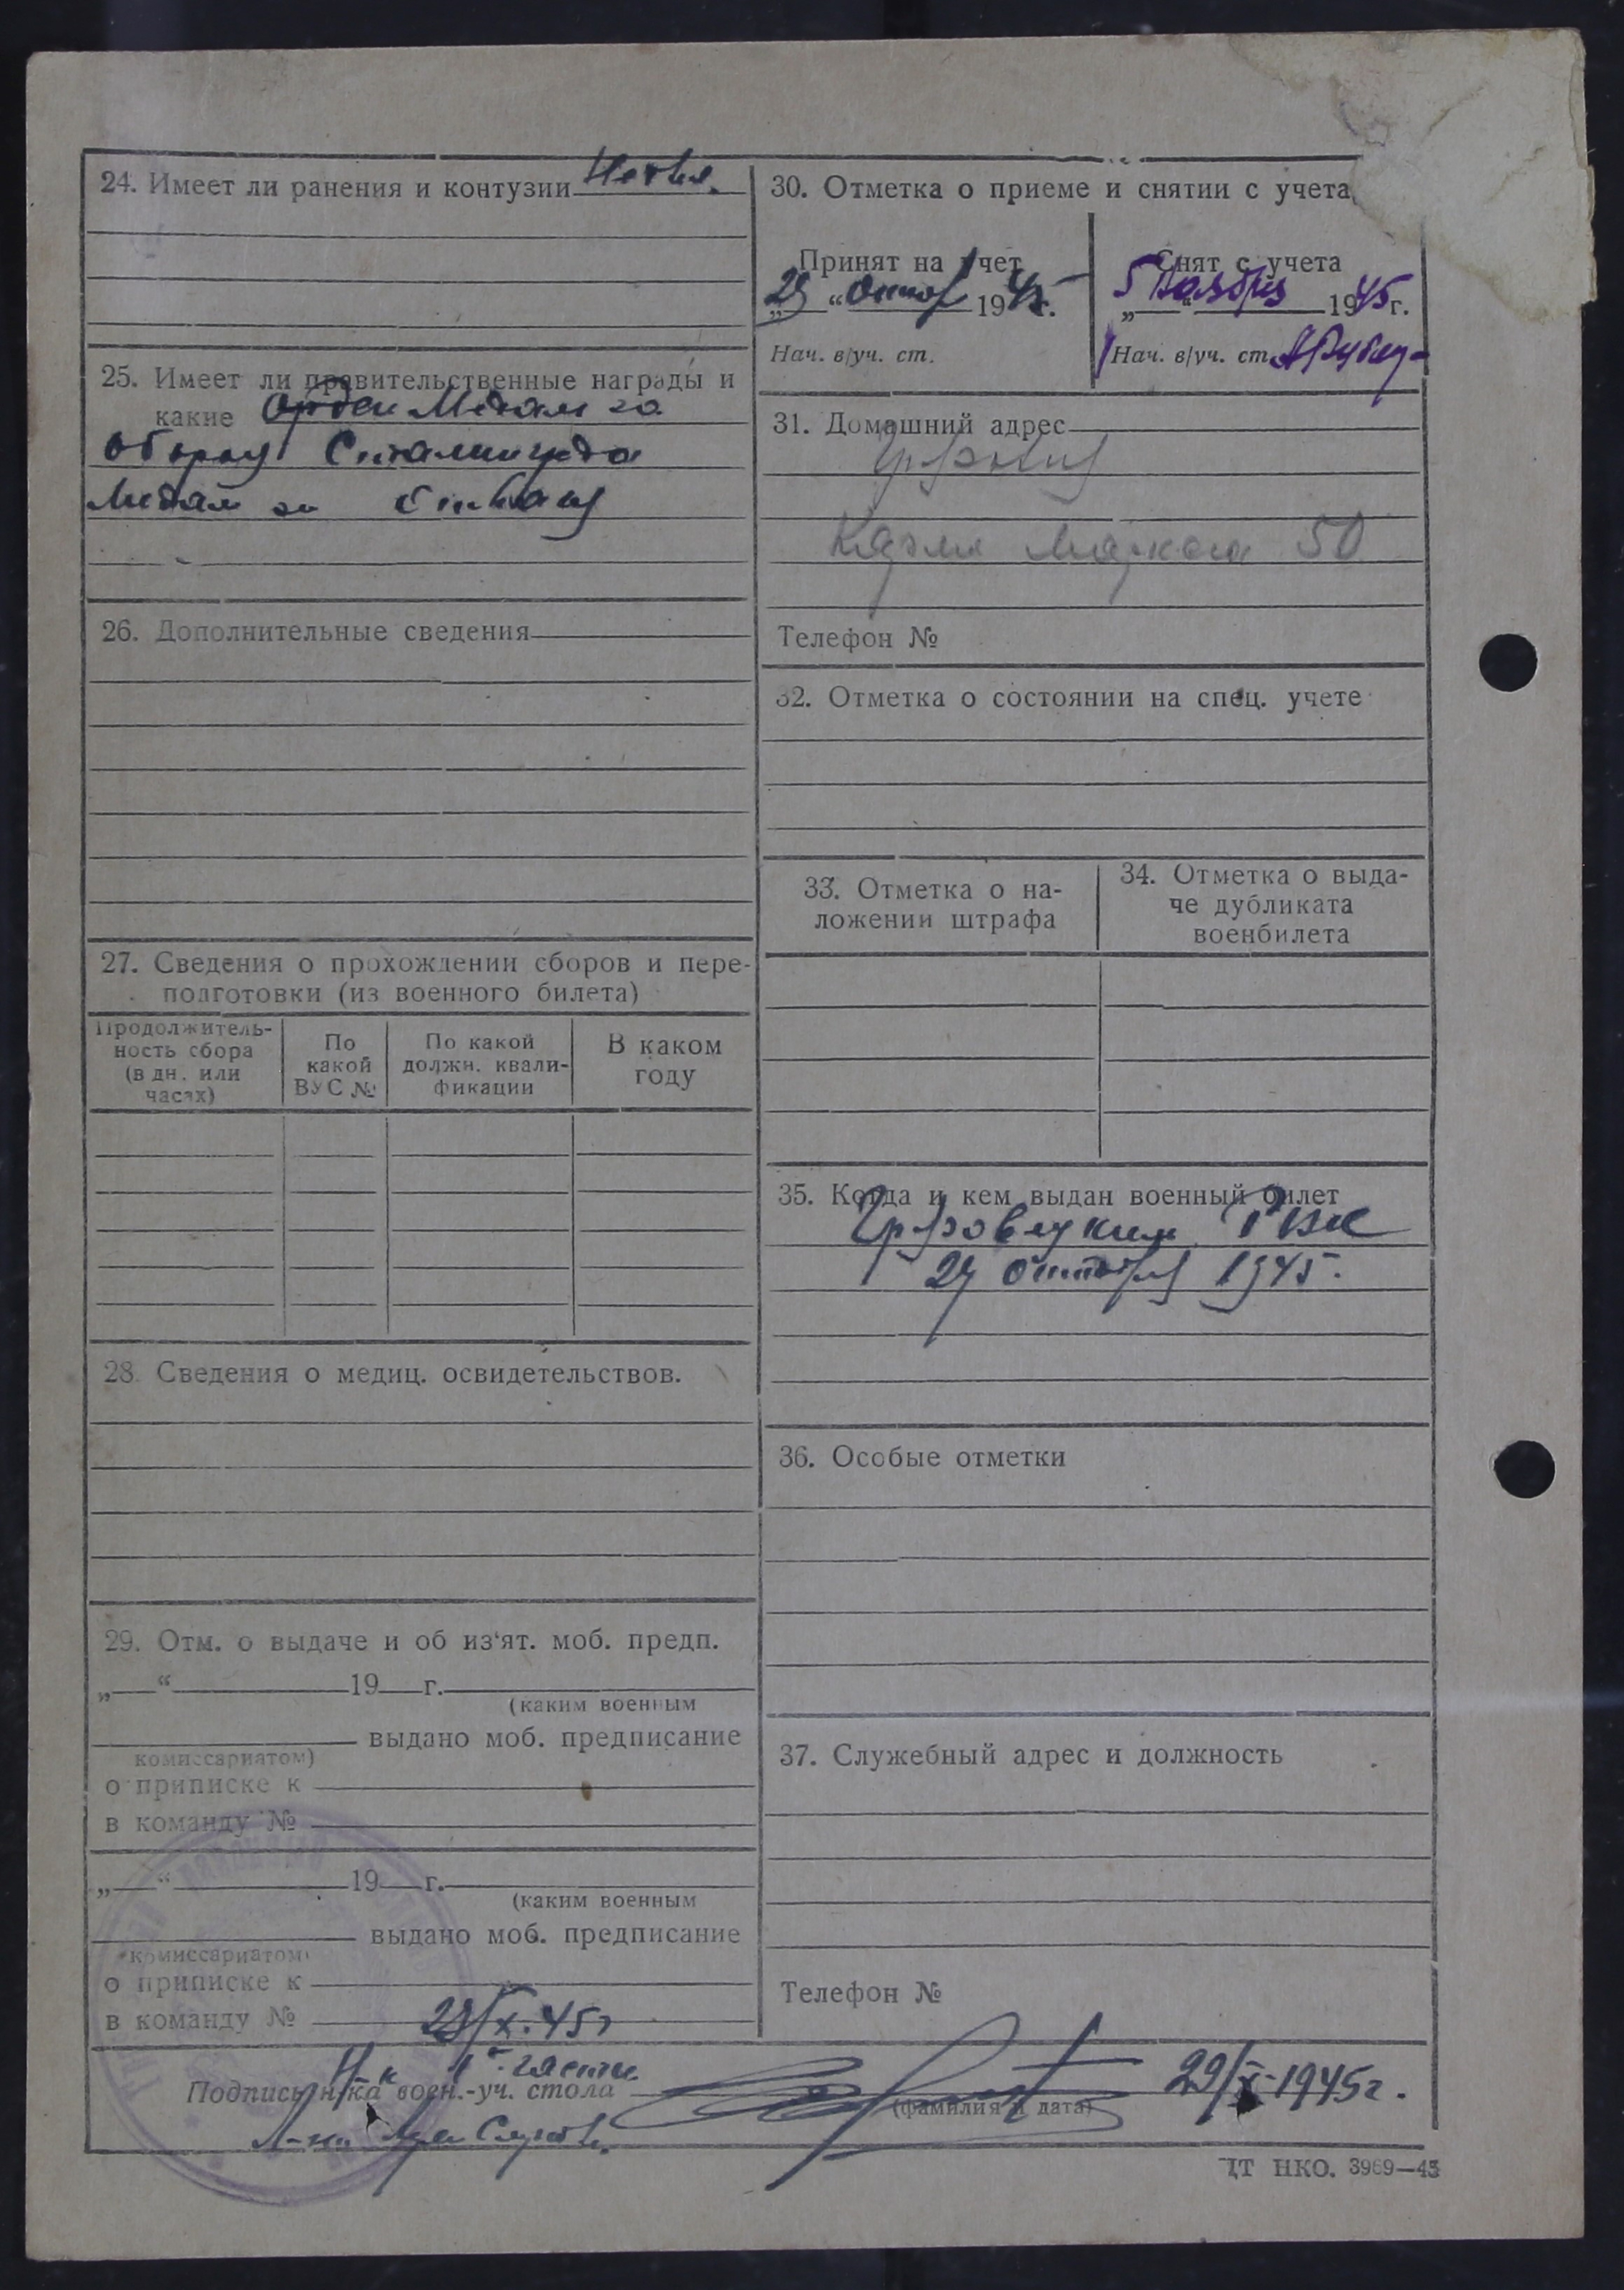 24. Имеет ли ранения и контузии
25. Имеет ли правительственные награды и
какие Орден Медаль за
оборону Сталинграда
Медаль за
26. Дополнительные сведения
27. Сведения о прохождении сборов и пере-
подготовки (из военного билета)
Продолжитель-
ность сбора
(в дн. или
часах)
По
какой
ВУС №
По какой
должн. квали-
фикации
В каком
году
28. Сведения о медиц. освидетельствов.
29. Отм. о выдаче и об из‘ят. моб. предп.
„ “ 19 г.
(каким военным
выдано моб. предписание
комиссариатом)
о приписке к
в команду №
„ “ 19 г.
(каким военным
выдано моб. предписание
комиссариатом)
о приписке к
в команду №
29/X.45г
30. Отметка о приеме и снятии с учета
Принят на учет
„29“ 1945г.
Нач. в/уч. ст.
Снят с учета
„5“ Ноября 1945г.
Нач. в/уч. ст.
31. Домашний адрес
Карла Маркса 50
Телефон №
32. Отметка о состоянии на спец. учете
33. Отметка о на-
ложении штрафа
34. Отметка о выда-
че дубликата
военбилета
35. Когда и кем выдан военный билет
РВК
октября 1945.
36. Особые отметки
37. Служебный адрес и должность
Телефон №
1й части
Подпись н-ка воен.-уч. стола
(фамилия и дата)
29/X-1945г.
ЦТ НКО. 3969—43